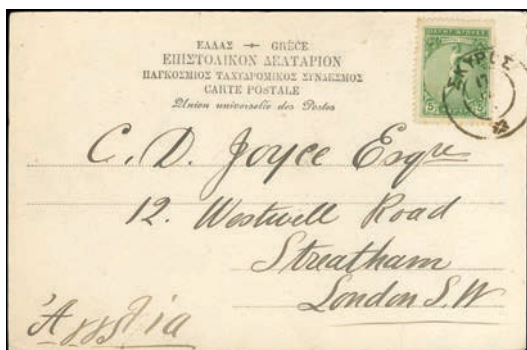 ΕΛΛΑΣ — GRÈCE
ΕΠΙΣΤΟΛΙΚΟΝ ΔΕΛΤΑΡΙΟΝ
ΠΑΓΚΟΣΜΙΟΣ ΤΑΧΥΔΡΟΜΙΚΟΣ ΣΥΝΔΕΣΜΟΣ
CARTE POSTALE
Union universelle des Postes
ΣΚΥΡΟΣ
C. D. Joyce Esqre
12. Westwell Road
Streatham
London S.W
Ἀγγλία